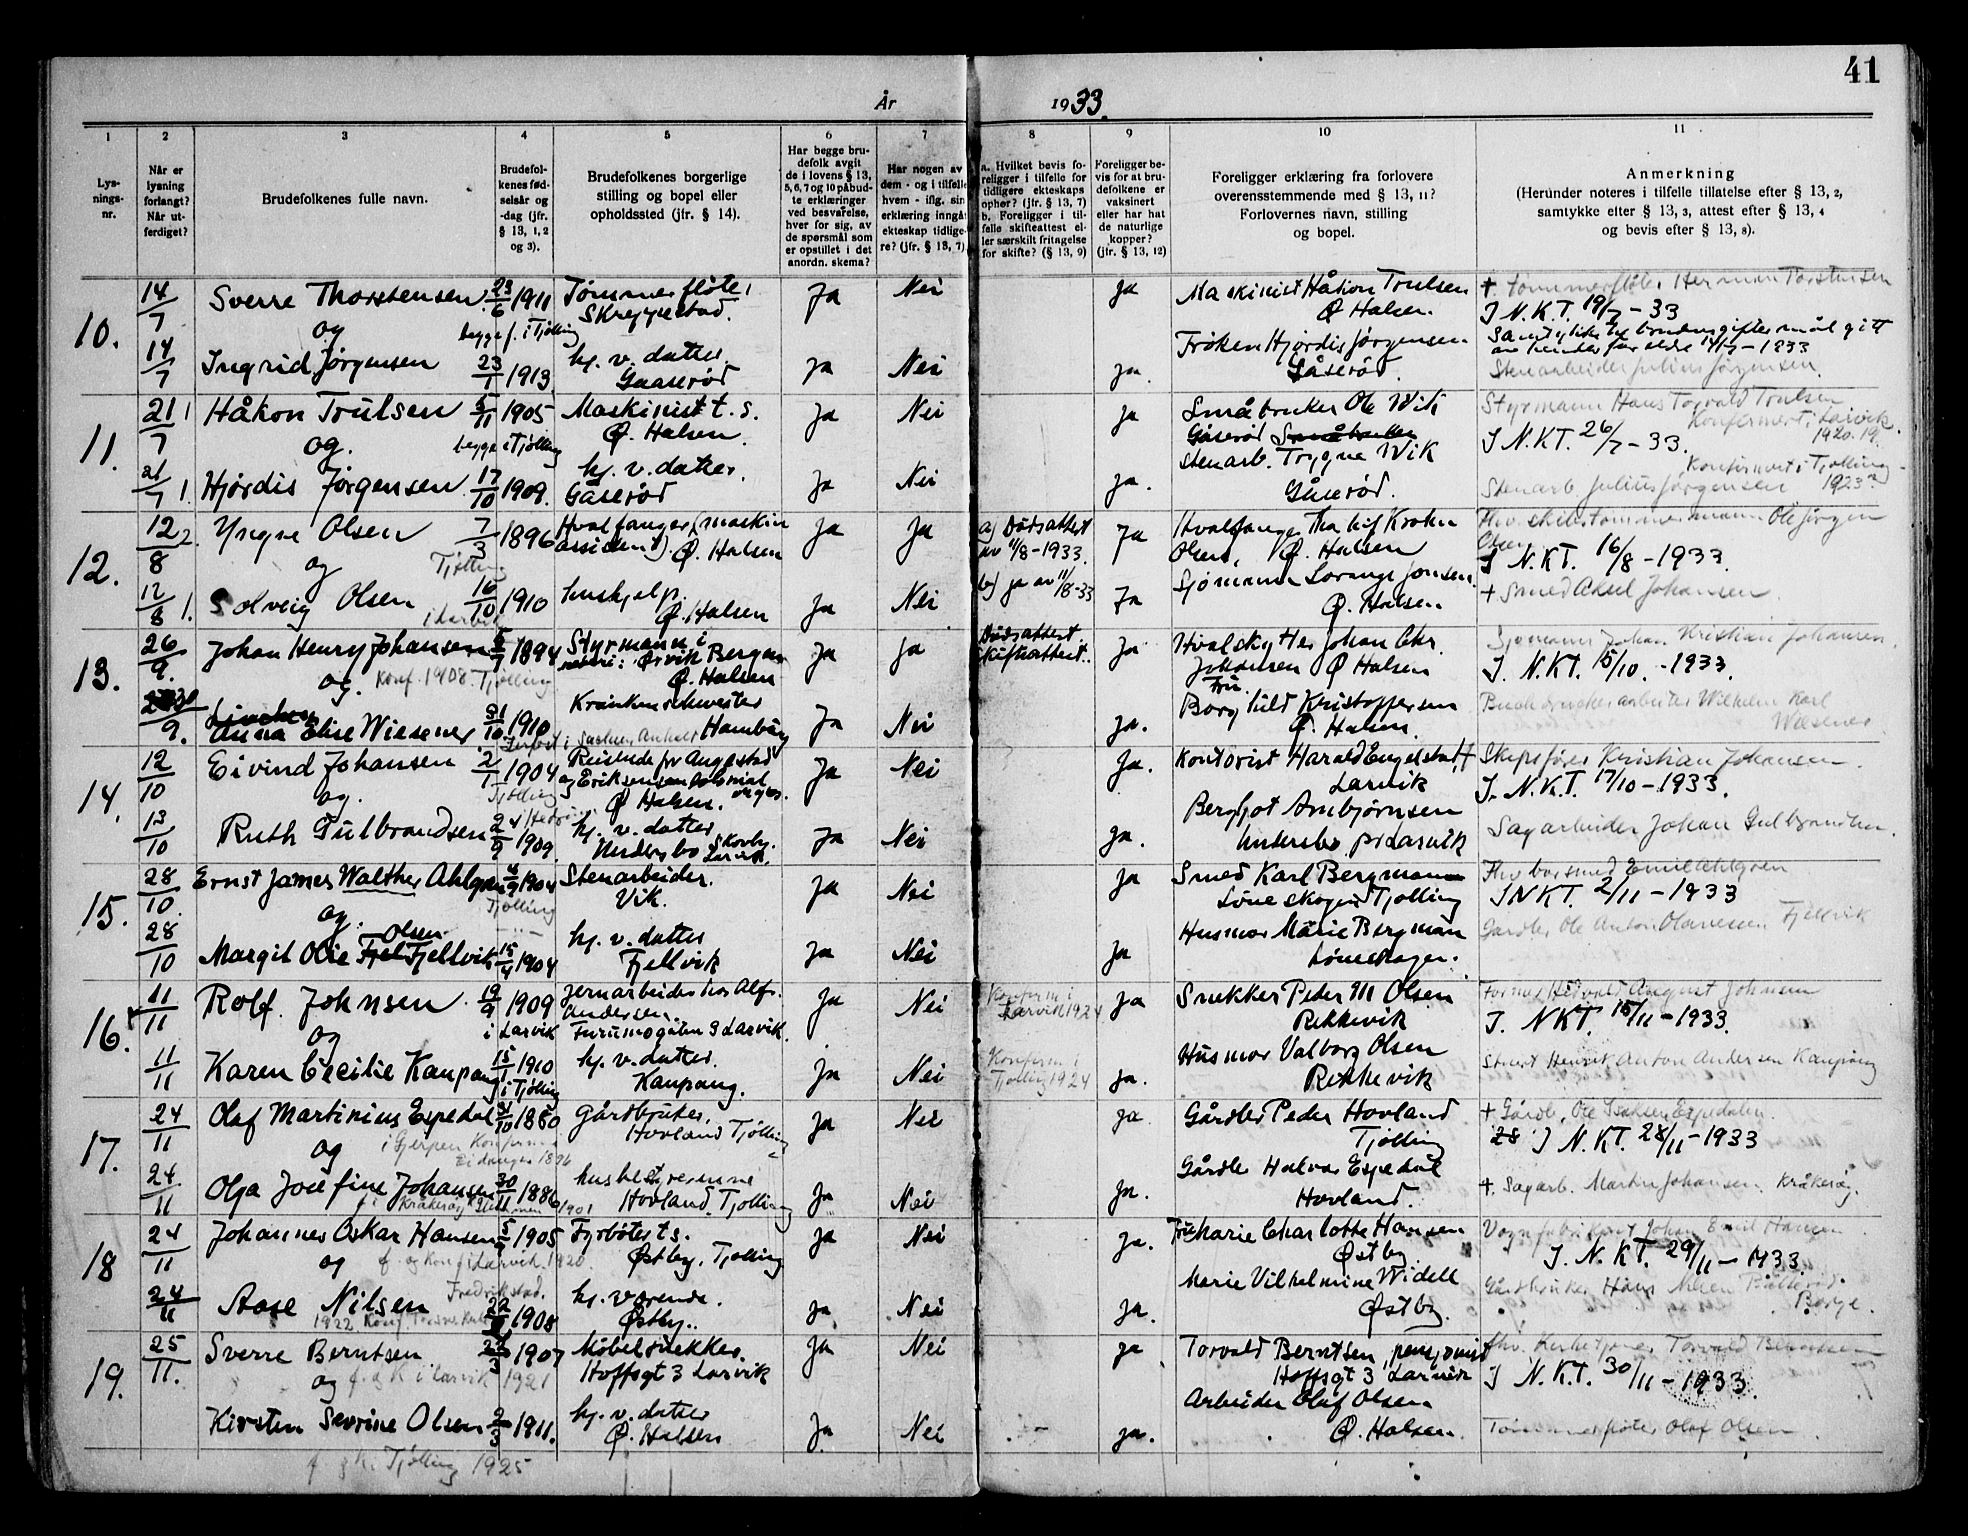 41
År 1933.
1 2 3 4 5 6 7 8 9 10 11
Lysningsnr.
Når er lysning forlangt? Når utferdiget?
Brudefolkenes fulle navn.
Brudefolkenes fødselsår og -dag (jfr. § 13, 1, 2 og 3).
Brudefolkenes borgerlige stilling og bopel eller opholdssted (jfr. § 14).
Har begge brudefolk avgit de i lovens § 13, 5, 6, 7 og 10 påbudte erklæringer ved besvarelse, hver for sig, av de spørsmål som er opstillet i det anordn. skema?
Har nogen av dem - og i tilfelle hvem - iflg. sin erklæring inngått ekteskap tidligere? (jfr. § 13, 7)
a. Hvilket bevis foreligger i tilfelle for tidligere ekteskaps ophør? (jfr. § 13, 7)
b. Foreligger i tilfelle skifteattest eller særskilt fritagelse for skifte? (§ 13, 9)
Foreligger bevis for at brudefolkene er vaksinert eller har hat de naturlige kopper? (jfr. § 13, 12)
Foreligger erklæring fra forlovere overensstemmende med § 13, 11? Forlovernes navn, stilling og bopel.
Anmerkning
(Herunder noteres i tilfelle tillatelse efter § 13, 2, samtykke efter § 13, 3, attest efter § 13, 4 og bevis efter § 13, 8).
10.
14/7 Sverre Thorstensen 23/6 1911 Tømmerfløter Skreppestad. Ja Nei ja Maskinist Håkon Trulsen Ø Halsen. + Tømmerfløter Herman Torstensen
I N.K.T. 19/7-33
og begge f. i Tjølling
14/7 Ingrid Jørgensen 23/1 1913 hj. v. datter. Gaaserød Ja Nei ja. Frøken Hjørdis Jørgensen Gåserød. Samtykke til brudens giftermål gitt
Stenarbeider Julius Jørgensen.
11.
21/7 Håkon Trulsen 5/11 1905 Maskinist t. s. Ø. Halsen. Ja Nei ja Småbruker Ole Wik Gåserød Styrmann Hans Torvald Trulsen
Konfirmert i Larvik
I N.KT. 26/7-33.
og. begge i Tjølling
21/7 Hjørdis Jørgensen 17/10 1909. hj. v. datter. Gåserød Ja Nei ja. Stenarb. Trygve Wik Gåserød. Konfirmert i Tjølling 1923
Stenarb Julius Jørgensen
12.
12/8 Yngve Olsen 7/3 1896 Hvalfanger (maskin assistent). Ø. Halsen Ja Ja a) Dødsattest av 11/8-1933. Ja Hvalfanger Thalif Krohn Olsen, Ø. Halsen Fhv. skibstømmermann Ole Jørgen Olsen
I N.KT. 16/8-1933.
og Tjølling
12/8 Solveig Olsen 16/10 1910 hushjelp. Ø. Halsen Ja Nei b) ja av 11/8-33 Ja Sjømann Lorang Jonsen. Ø. Halsen + Smed Aksel Johansen
i Larvik
13.
26/9. Johan Henry Johansen 1894 Styrmann i Ø. Halsen Ja Ja Dødsattest skifteattest. Ja Hvalskytter Johan Chr. Johansen Ø Halsen Sjømann Johan Kristian Johansen
I. N.KT. 15/10.-1933.
og. Konf. 1908. Tjølling
Anna Elise Wiesener 31/10 1910 Krankenschwester Hamburg Ja Nei ja. Fru. Borghild Kristoffersen Ø. Halsen Buchdrucker arbeiter Wilhelm Karl Wiesener
14.
12/10 Eivind Johansen 2/1 1904 Reisende for Ø Halsen. Ja Nei Ja. Kontorist Harald Engelstad, Larvik Skipsfører Kristian Johansen.
I. N.K.T. 17/10-1933.
og. Tjølling
13/10 Ruth Gulbrandsen 24/9 1909. hj. v. datter Ja Nei ja. Bergljot Arnbjørnsen Sagarbeider Johan Gulbrandsen.
15.
28/10. Ernst James Walther Ahlgren 4/9 1904 Stenarbeider. Vik. Ja Nei ja Smed Karl Bergmann Løveskogen Tjølling Fhv borsmed Emil Ahlgren
I NKT. 2/11-1933
og. Tjølling
28/10 Margit Olie Olsen Fjellvik 15/4 1904 hj. v. datter Fjellvik Ja Nei ja Husmor Marie Bergman Løveskogen. Gårdbr Ole Anton Olavessen Fjellvik
16.
11/11 Rolf. Johnsen. 19/9 1909 i Larvik Jernarbeider hos Alfr. Andersen Furumogaten 3 Larvik. Ja Nei Konfirm i Larvik 1924 ja Snekker Peder M Olsen Rekkevik Former Hedvald August Johnsen
I. N.KT. 15/11-1933.
og
11/11 Karen Cecilie Kaupang 15/1 1910 i Tjølling hj. v. datter. Kaupang. Ja Nei Konfirm i Tjølling 1924 ja. Husmor Valborg Olsen Rekkevik Stuert Henrik Anton Andersen Kaupang
17.
24/11 Olaf Martinius Espedal 31/10 1880 Gårdbruker, Hovland Tjølling Ja Nei ja. Gårdbr Peder Hovland Tjølling + Gårdb. Ole Isaksen Espedalen.
I N.KT. 28/11-1933
og i Gjerpen Konfirm i Eidanger 1896
24/11 Olga Josefine Johansen 30/11 1886 husbestyrerinne Hovland, Tjølling Ja Nei ja. Gårdbr Halvor Espedal Hovland. +. Sagarb. Martin Johansen. Kråkerøy.
18
24/11 Johannes Oskar Hansen 5/9 1905 Fyrbøter t s. Østby, Tjølling Ja Nei ja. Fru Marie Charlotte Hansen Østby Vognfabrikant Johan Emil Hansen
I. N. KT. 29/11-1933.
og f. og konf i Larvik. 1920.
24/11 Aase Nilsen Fredrikstad. 1908 hj. værende. Østby.. Ja Nei ja. Marie Vilhelmine Widell Østby. Borge.
19.
25/11. Sverre Berntsen 1907 Møbelsnekker. Hoffsgt 3 Larvik Ja Nei ja Torvald Berntsen, pensjonist Hoffsgt 3 Larvik Fhv. Torvald Berntsen
I N.K.T. 30/11-1933.
og f. g k i Larvik 1921
Kirsten Sevrine Olsen 2/3 1911. hj. v. datter Ø. Halsen Ja Nei ja. Arbeider Olaf Olsen Ø. Halsen. Tømmerfløter Olaf Olsen
f. g k. Tjølling 1925